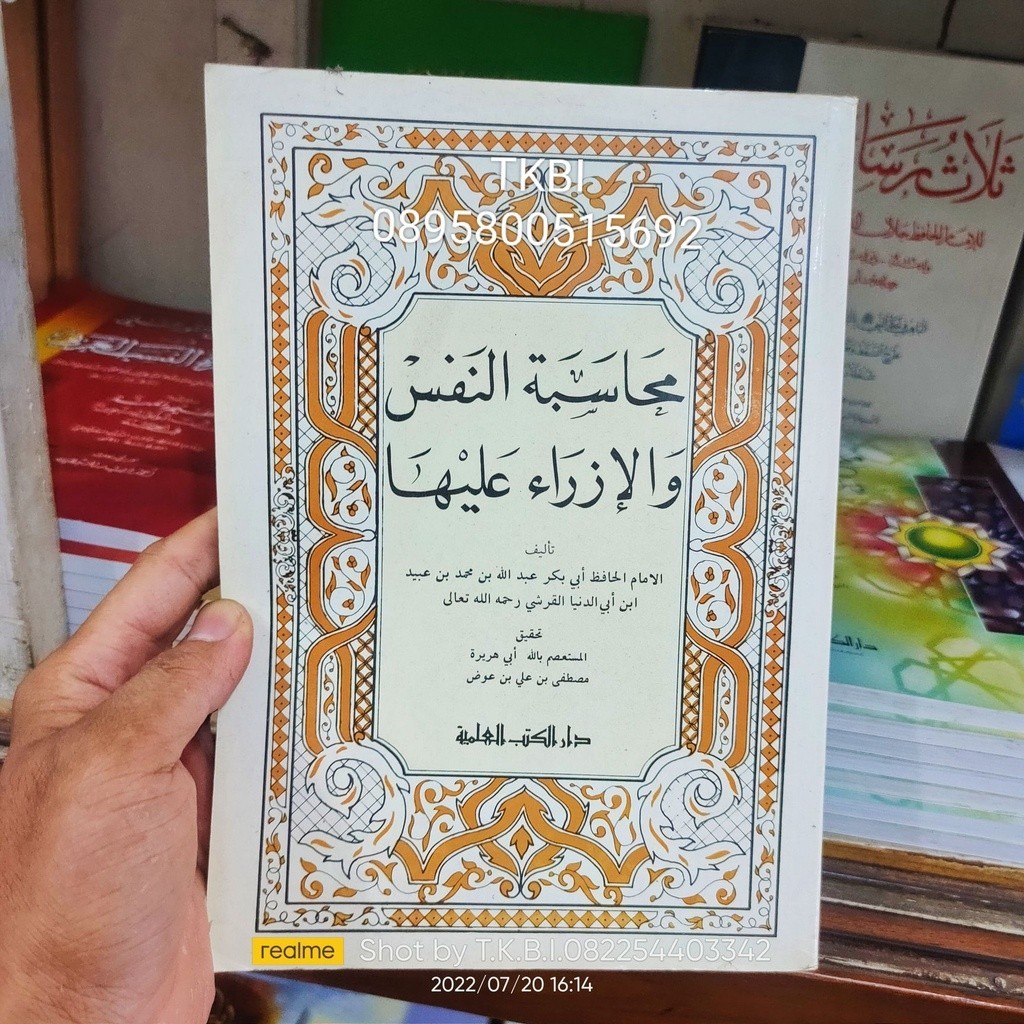 TKBI
0895800515692
مَحَاسَبَة النَفسْ
وَالإزرَاء عَليْهَا
تأليف
الامام الحافظ أبي بكر عبد الله بن محمد بن عبيد
ابن أبي الدنيا القرشي رحمه الله تعالى
تحقيق
المستعصم بالله أبي هريرة
مصطفى بن علي بن عوض
دار الكتب العلمية
ثلَاثُ رَسَا
للإمام الحافظ جلال
realme
Shot by T.K.B.I.082254403342
2022/07/20 16:14